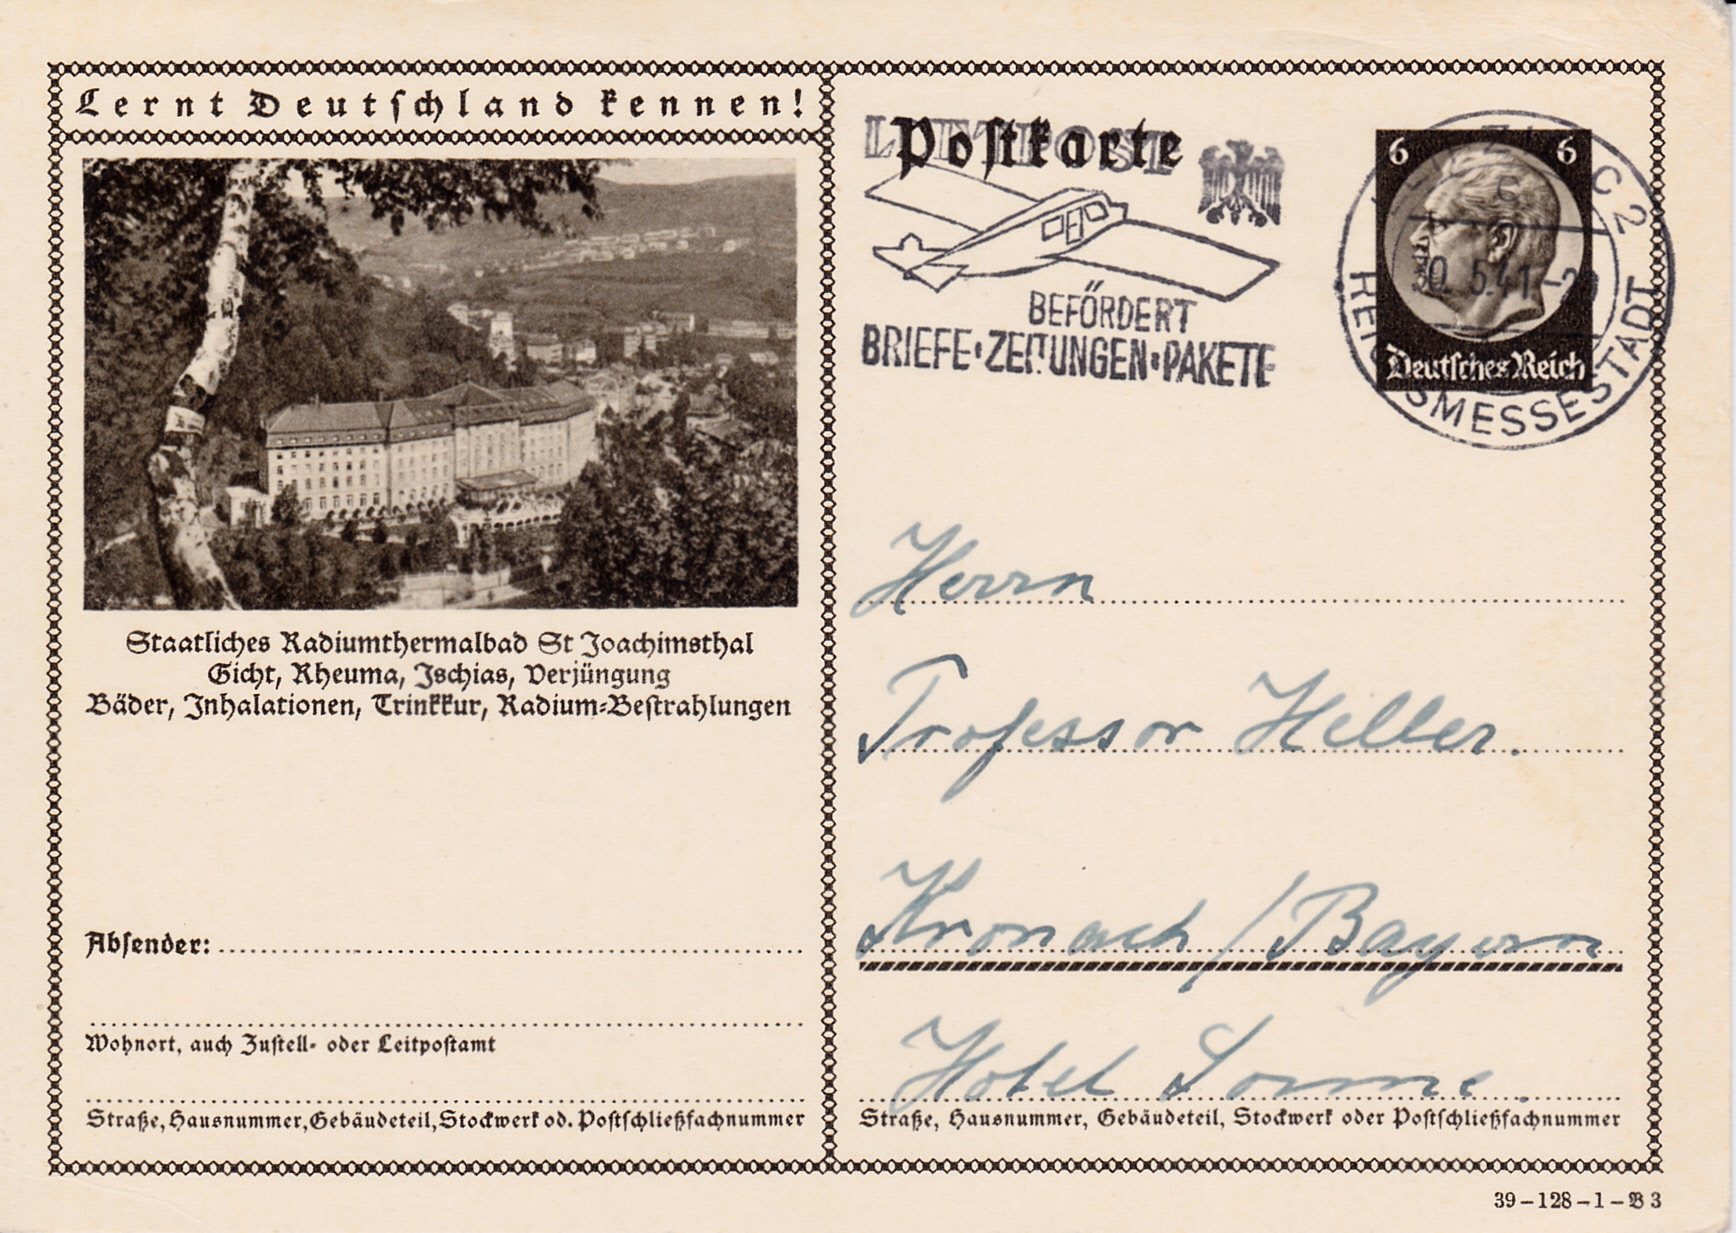 Lernt Deutschland kennen!
Staatliches Radiumthermalbad St Joachimsthal
Gicht, Rheuma, Ischias, Verjüngung
Bäder, Inhalationen, Trinkkur, Radium-Bestrahlungen
Absender:
Wohnort, auch Zustell- oder Leitpostamt
Straße, Hausnummer, Gebäudeteil, Stockwerk od. Postschließfachnummer
Postkarte
LUFTPOST
BEFÖRDERT
BRIEFE·ZEITUNGEN·PAKETE
6 6
Deutsches Reich
C 2
30.5.41
REICHSMESSESTADT
Herrn
Professor Heller.
Kronach / Bayern
Hotel Sonne.
Straße, Hausnummer, Gebäudeteil, Stockwerk oder Postschließfachnummer
39-128-1-B 3